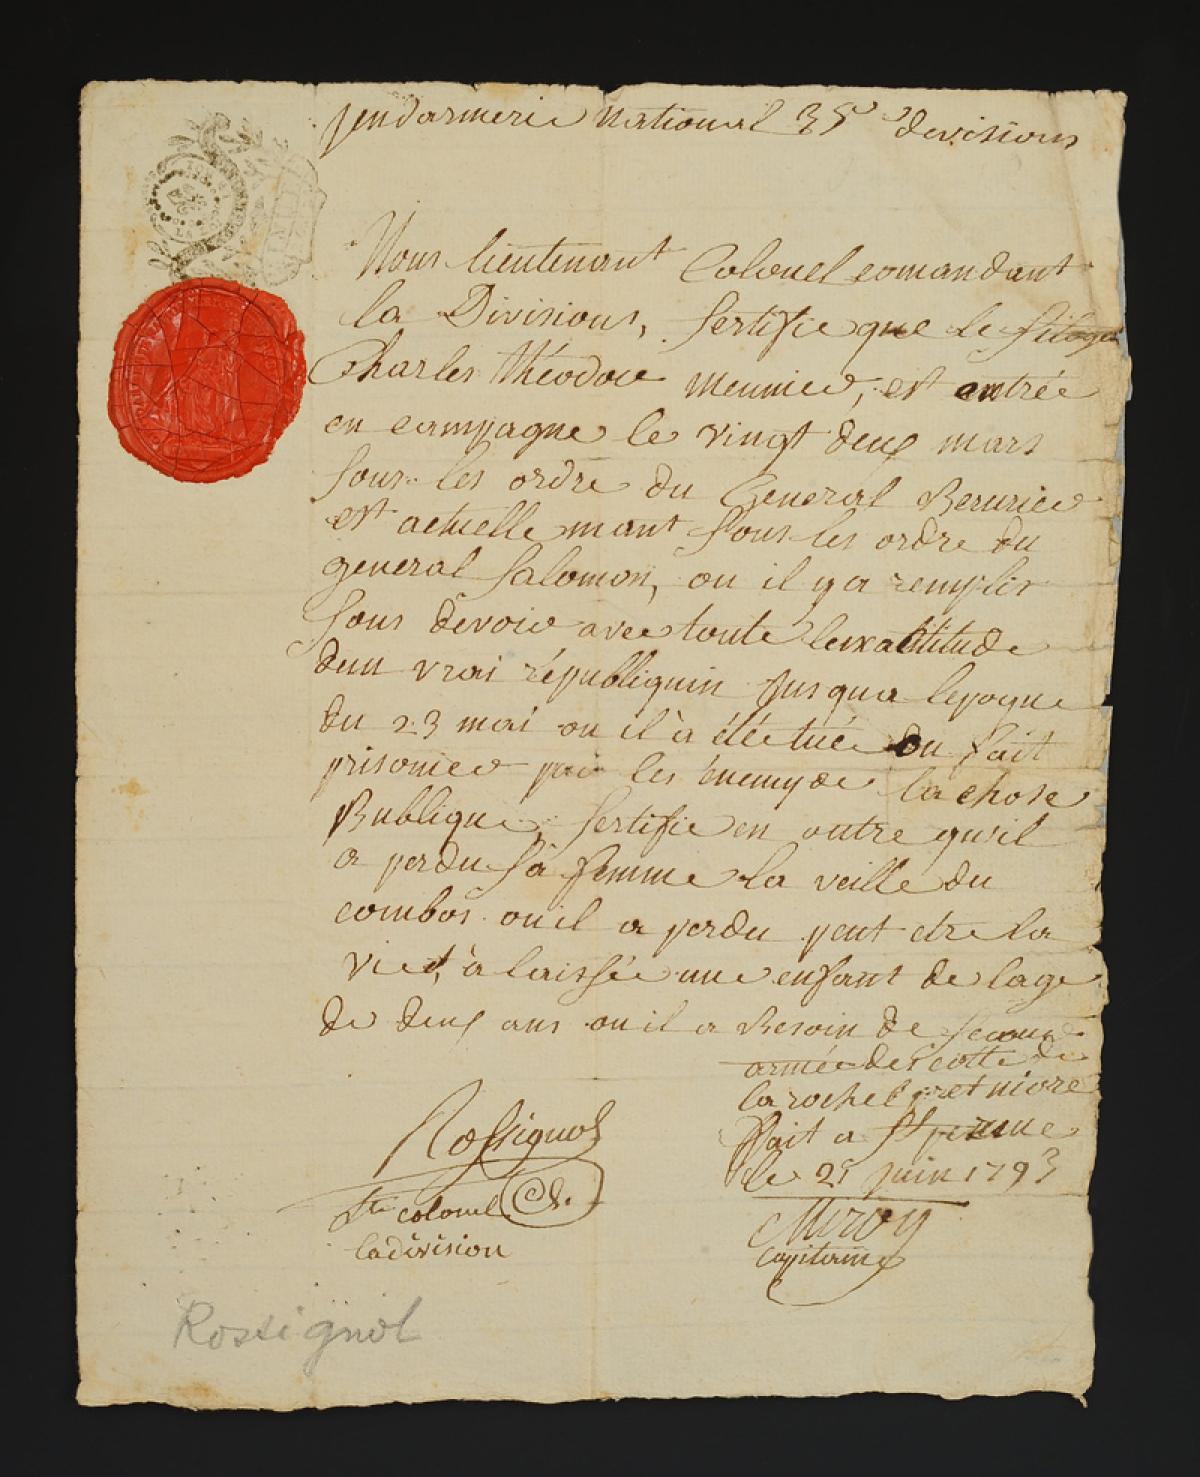 jendarmerie national 35e devisions
Nous lieutenant Colonel comandant
la Divisions, sertifie que le sitoyen
Charles théodore meunier, est entrée
en campagne le vingt deux mars
sous les ordre du General
est actuellemant sous les ordre du
general Salomon, ou il y a remplir
sons devoir avec toute lexatitude
dun vrai républiquin jusqua lepoque
du 23 mai ou il à été tuée ou fait
prisonier par les enemy de la chose
Publique, sertifie en outre quil
a perdu sa femme la veille du
combas ou il a perdu peut etre la
vie, à laissée une enfant de lage
de deux ans ou il a Besoin de secours
armée des cotte de
la rochel pret niore
fait a
le 25 juin 1793
Rossignol
Lte colonel Cdt
la division
Miroy
Capitaine
Rossignol